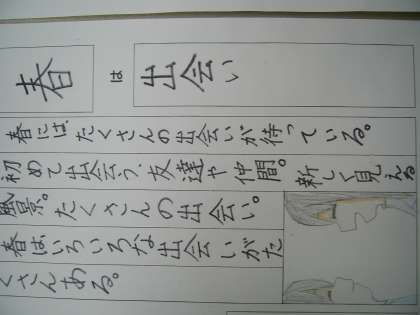 春は出会い
春には、たくさんの出会いが待っている。
初めて出会う、友達や仲間。新しく見える
風景。たくさんの出会い。
春はいろいろな出会いがた
くさんある。